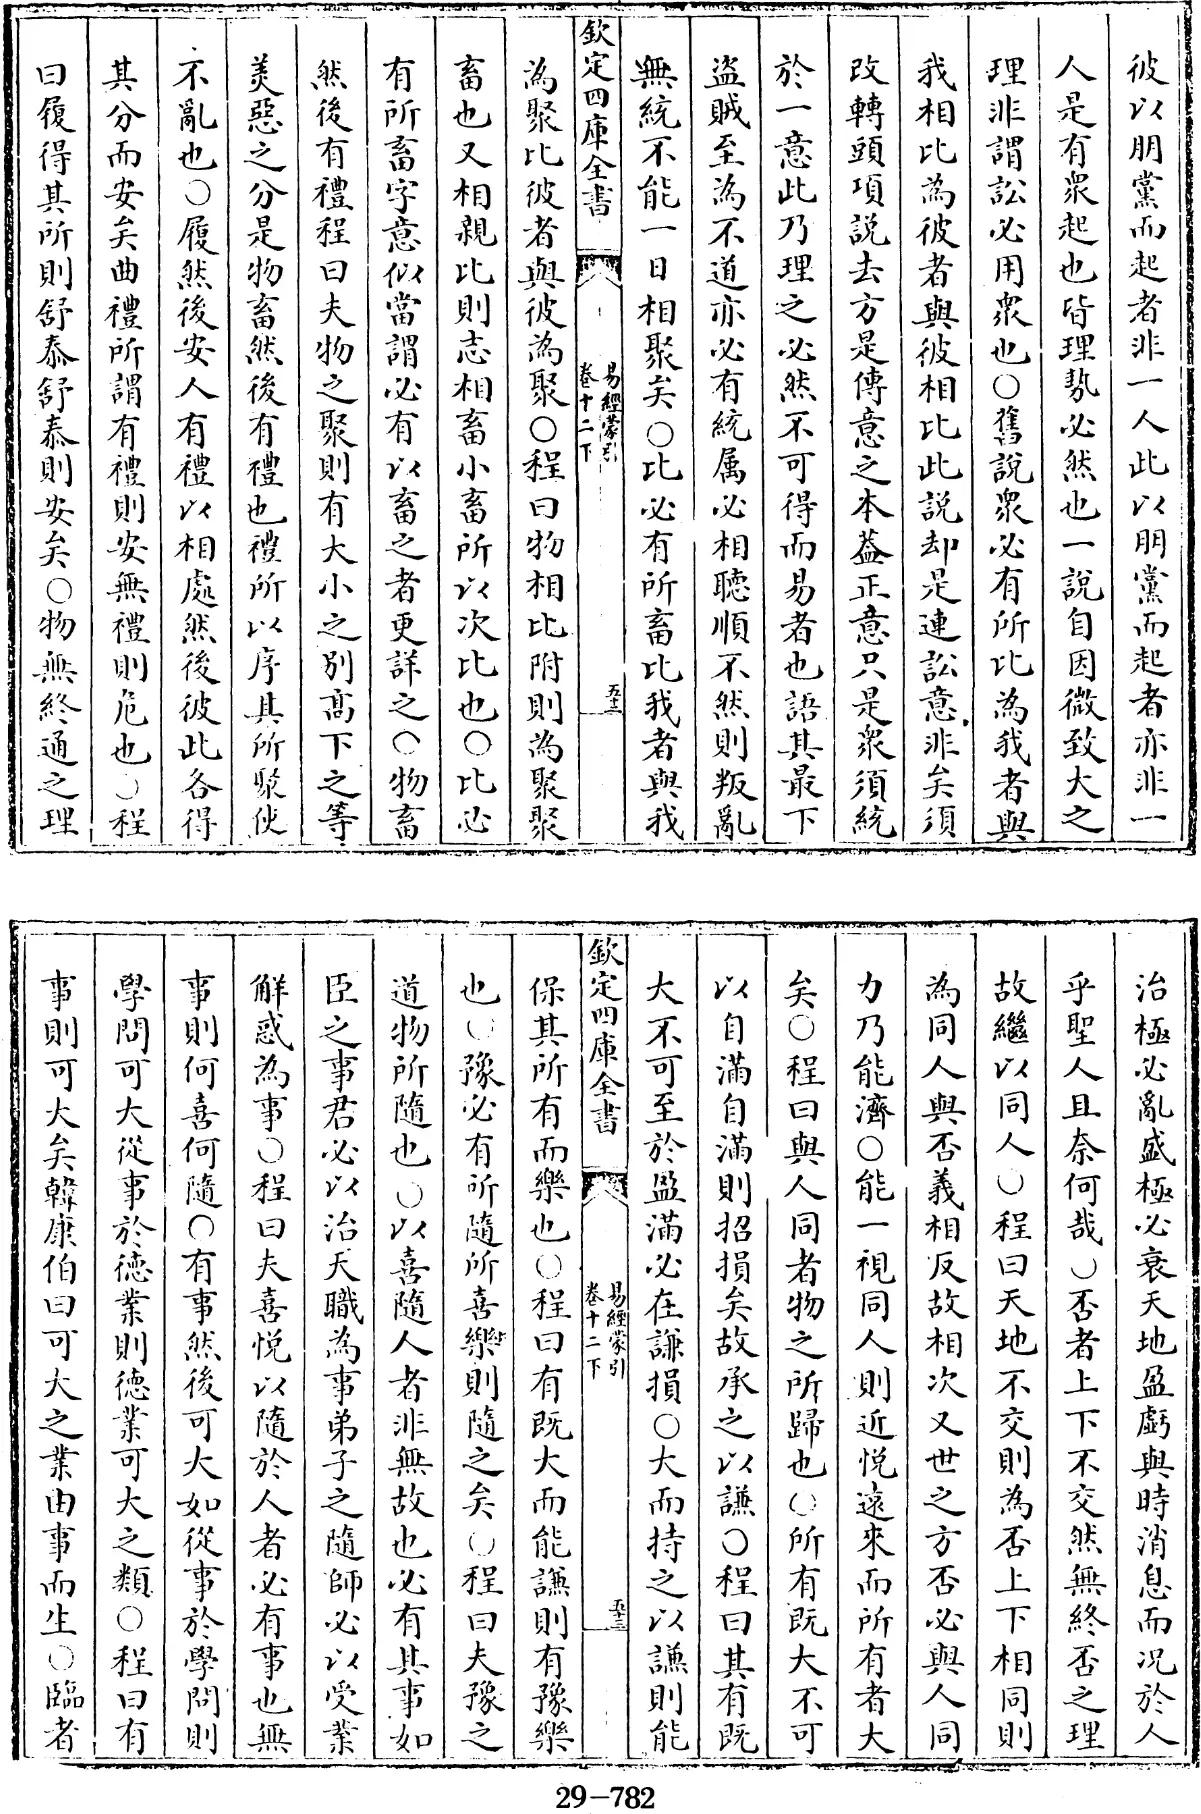 彼以朋黨而起者非一人此以朋黨而起者亦非一
人是有衆起也皆理勢必然也一說自因微致大之
理非謂訟必用衆也○舊說衆必有所比為我者與
我相比為彼者與彼相比此說却是連訟意非矣須
改轉頭項說去方是傳意之本葢正意只是衆須統
於一意此乃理之必然不可得而易者也語其最下
盜賊至為不道亦必有統属必相聽順不然則叛亂
無統不能一日相聚矣○比必有所畜比我者與我
欽定四庫全書
易經蒙引
卷十二下
五十二
為聚比彼者與彼為聚○程曰物相比附則為聚聚
畜也又相親比則志相畜小畜所以次比也○比必
有所畜字意似當謂必有以畜之者更詳之○物畜
然後有禮程曰夫物之聚則有大小之別高下之等
美惡之分是物畜然後有禮也禮所以序其所聚使
不亂也○履然後安人有禮以相處然後彼此各得
其分而安矣曲禮所謂有禮則安無禮則危也○程
曰履得其所則舒泰舒泰則安矣○物無終通之理
治極必亂盛極必衰天地盈虧與時消息而况於人
乎聖人且奈何哉○否者上下不交然無終否之理
故繼以同人○程曰天地不交則為否上下相同則
為同人與否義相反故相次又世之方否必與人同
力乃能濟○能一視同人則近悅遠來而所有者大
矣○程曰與人同者物之所歸也○所有既大不可
以自滿自滿則招損矣故承之以謙○程曰其有既
大不可至於盈滿必在謙損○大而持之以謙則能
欽定四庫全書
易經蒙引
卷十二下
五十三
保其所有而樂也○程曰有既大而能謙則有豫樂
也○豫必有所隨所喜樂則隨之矣○程曰夫豫之
道物所隨也○以喜隨人者非無故也必有其事如
臣之事君必以治天職為事弟子之隨師必以受業
解惑為事○程曰夫喜悅以隨於人者必有事也無
事則何喜何隨○有事然後可大如從事於學問則
學問可大從事於德業則德業可大之類○程曰有
事則可大矣韓康伯曰可大之業由事而生○臨者
29-782